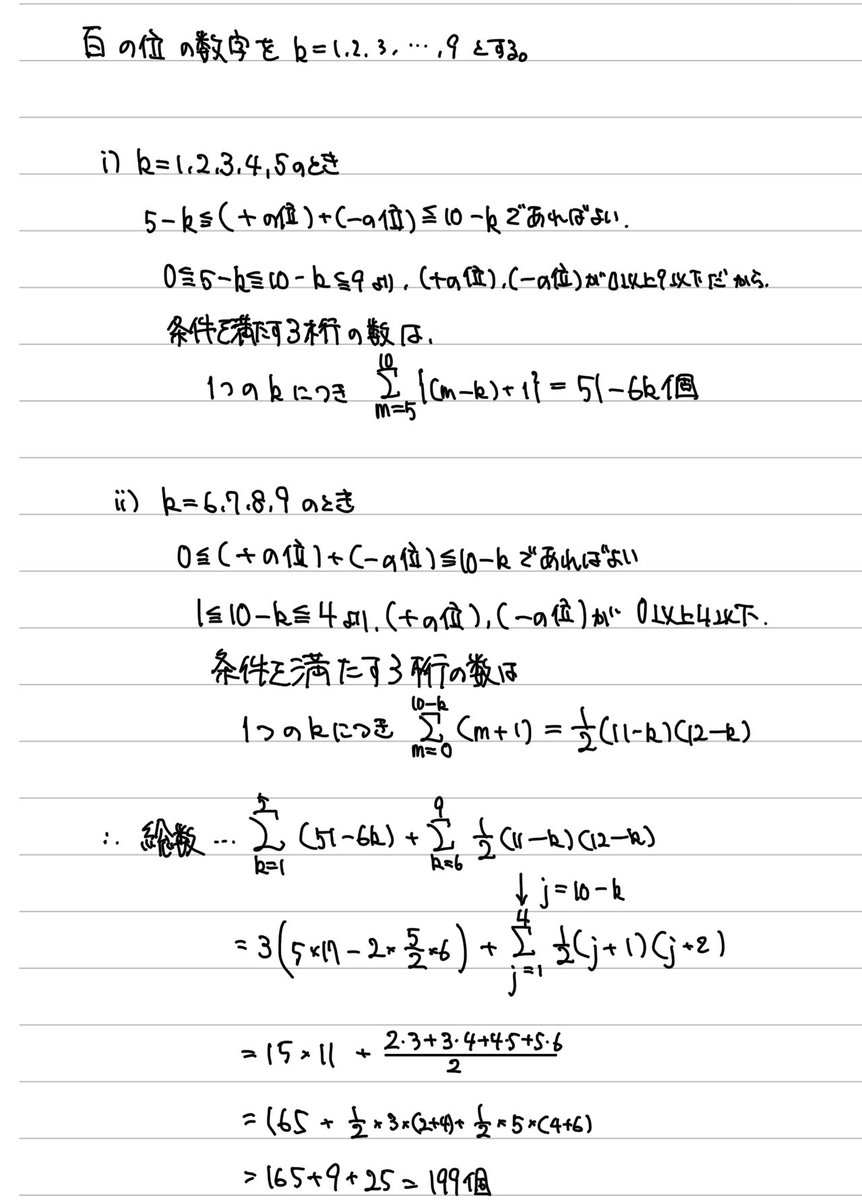 百の位の数字をk=1,2,3,…,9とする。
i) k=1,2,3,4,5のとき
5-k≦(十の位)+(一の位)≦10-kであればよい.
0≦5-k≦10-k≦9より,(十の位),(一の位)が0以上9以下だから,
条件を満たす3桁の数は,
1つのkにつき \sum_{m=5}^{10} {(m-k)+1} = 51-6k個
ii) k=6,7,8,9のとき
0≦(十の位)+(一の位)≦10-kであればよい
1≦10-k≦4より,(十の位),(一の位)が0以上4以下.
条件を満たす3桁の数は
1つのkにつき \sum_{m=0}^{10-k} (m+1) = \frac{1}{2}(11-k)(12-k)
∴ 総数… \sum_{k=1}^{5} (51-6k) + \sum_{k=6}^{9} \frac{1}{2}(11-k)(12-k)
↓ j=10-k
= 3(5×17-2×\frac{5}{2}×6) + \sum_{j=1}^{4} \frac{1}{2}(j+1)(j+2)
= 15×11 + \frac{2・3+3・4+4・5+5・6}{2}
= 165 + \frac{1}{2}×3×(2+4)+\frac{1}{2}×5×(4+6)
= 165+9+25 = 199個